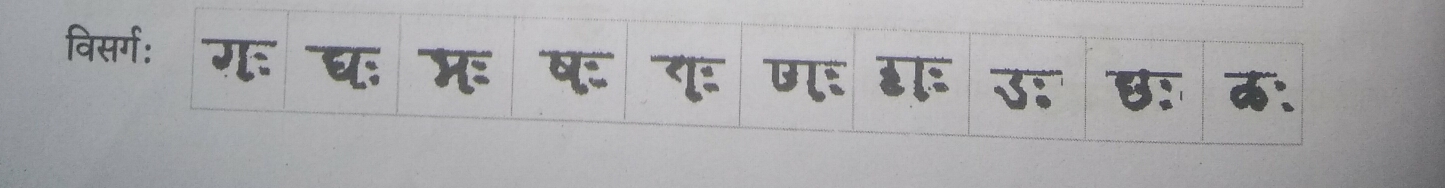 विसर्गः गः घः मः षः तः णः डाः डः छः ळः